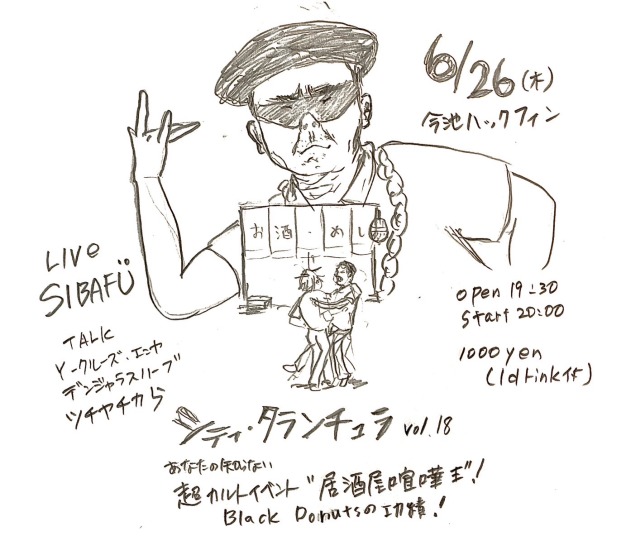 6/26(木)
今池ハックフィン
お酒・めし
LIVE
SIBAFÜ
open 19:30
start 20:00
TALK
Y-クルーズ・エンヤ
デンジャラスハーブ
ツチヤチカら
1000yen
(1drink付)
シティ・タランチュラ vol.18
あなたの知らない
超カルトイベント"居酒屋喧嘩王"!
Black Donutsの功績!